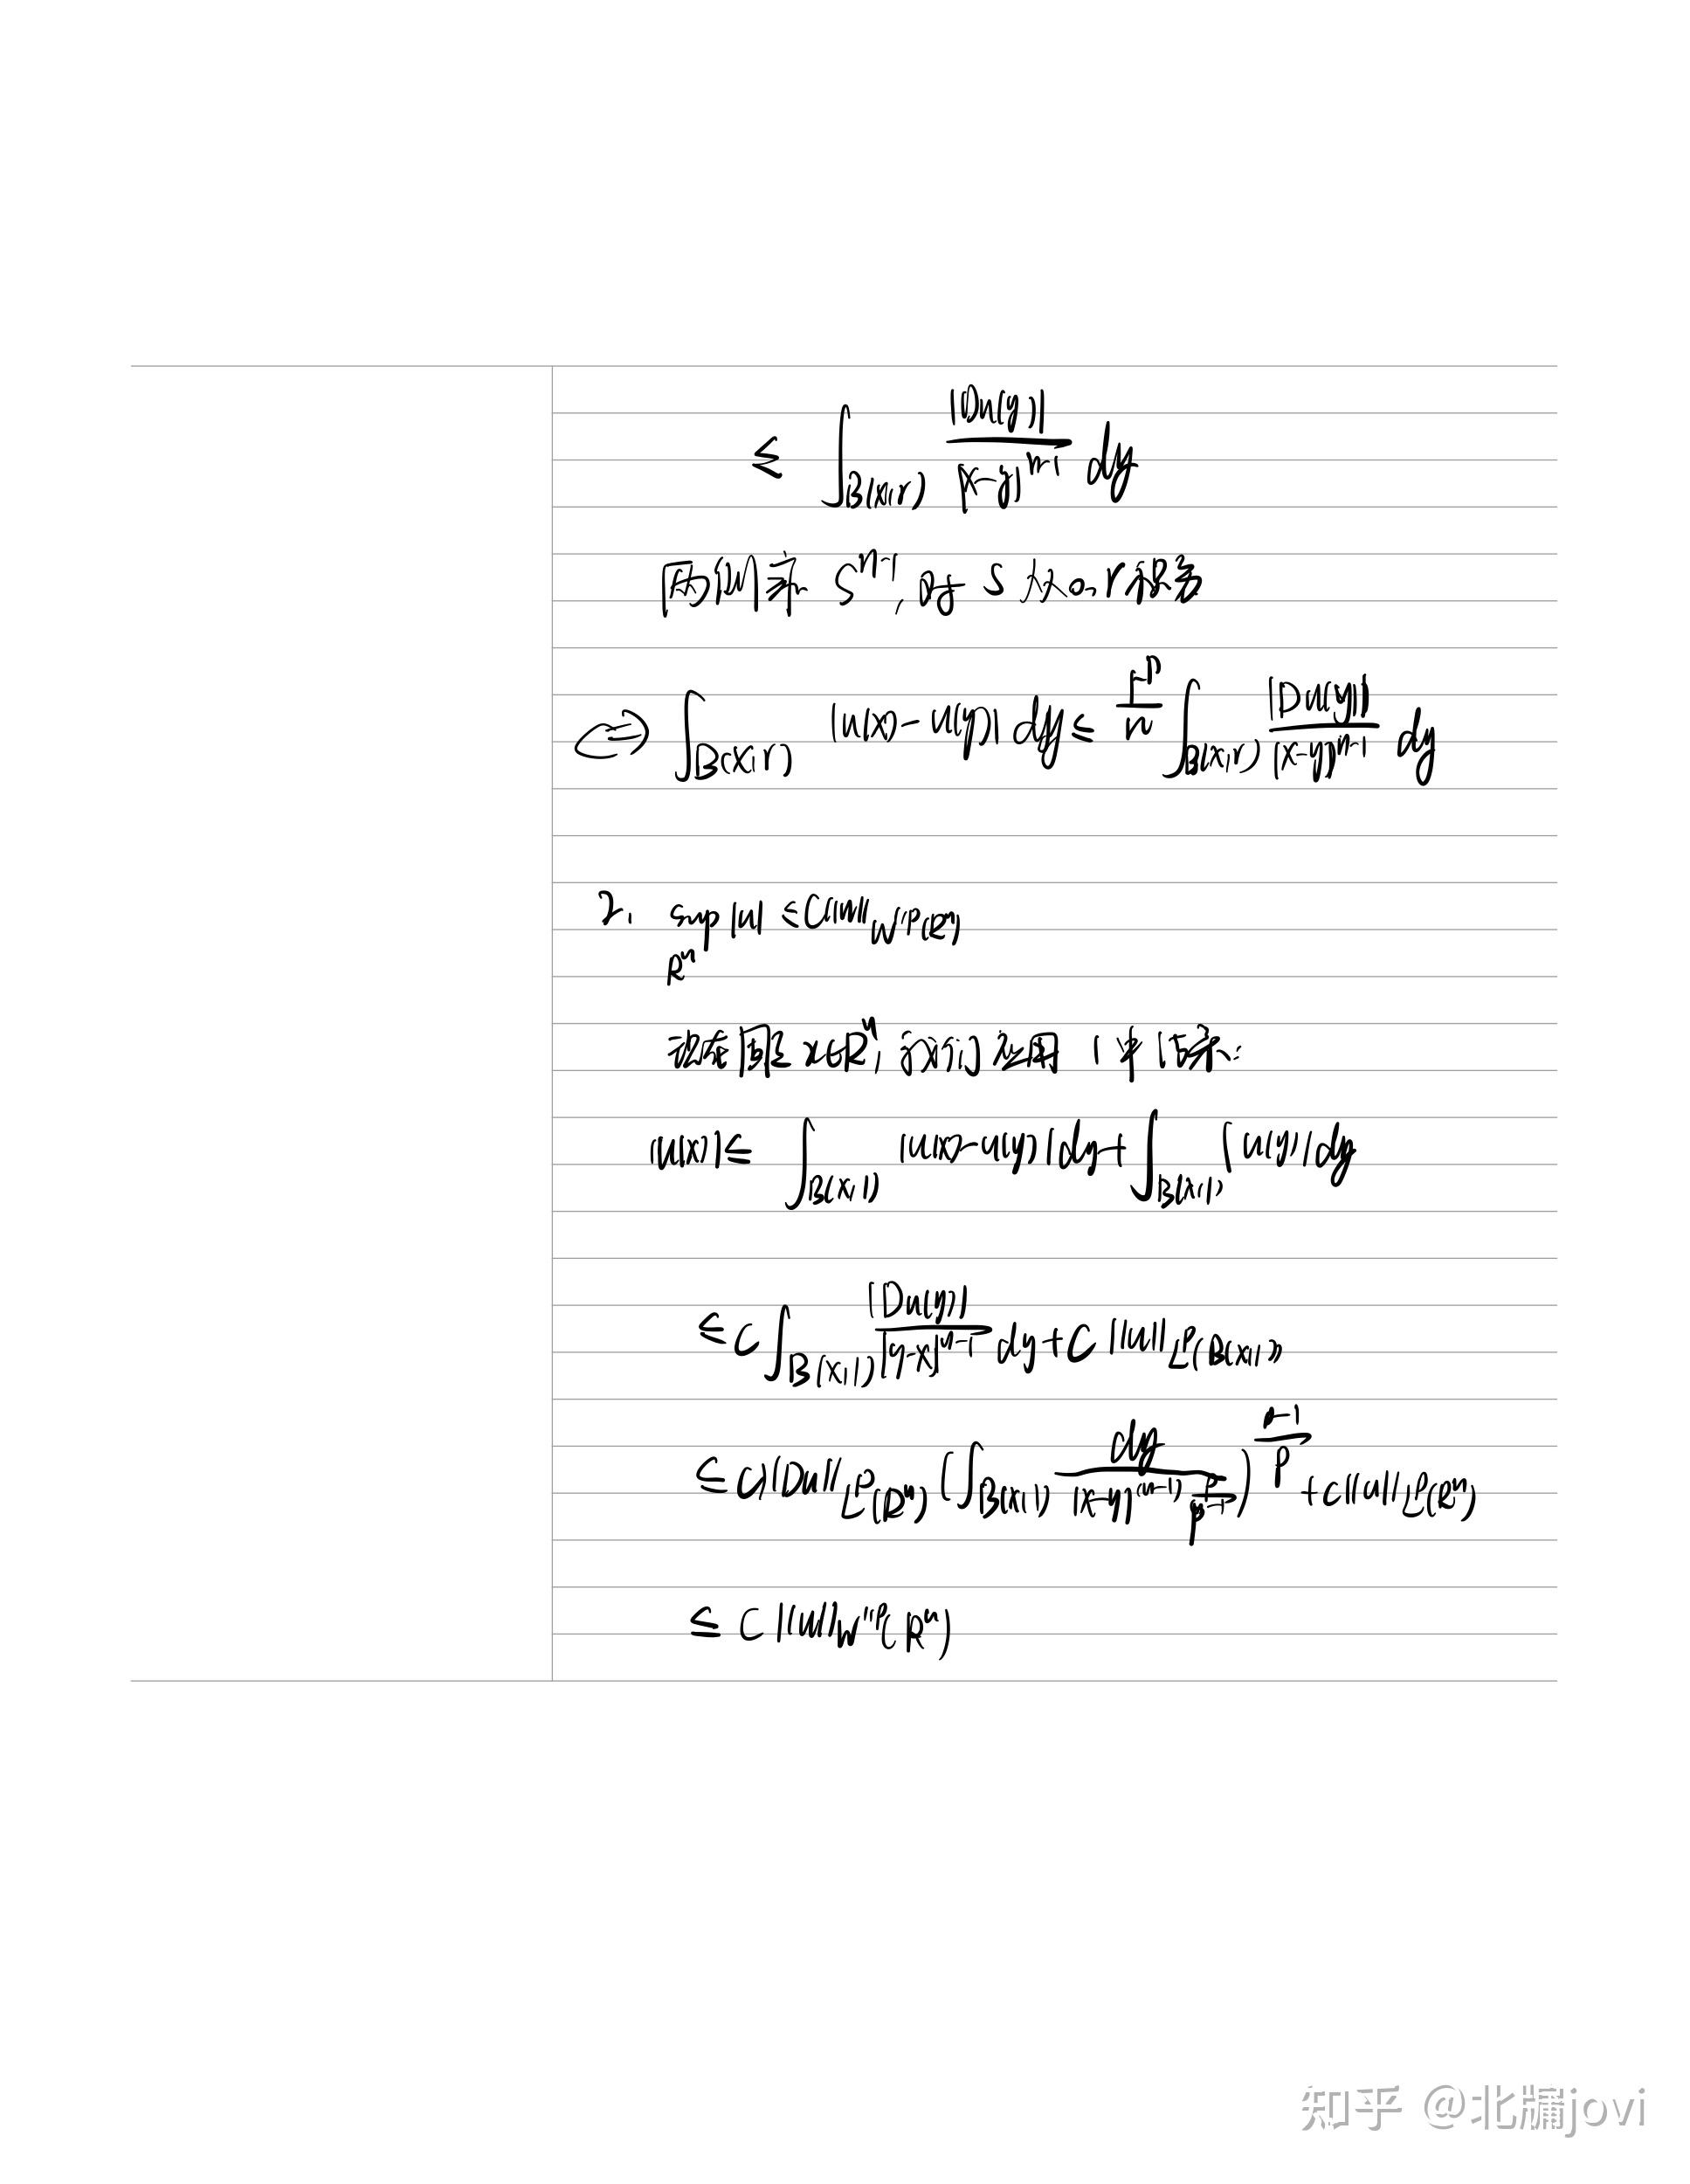 ≤ ∫_{B(x,r)} |Du(y)| / |x-y|^{n-1} dy
两侧乘 s^{n-1}, 对 s 从0→r积分
⇔ ∫_{B(x,r)} |u(x)-u(y)| dy ≤ r^n/n ∫_{B(x,r)} |Du(y)| / |x-y|^{n-1} dy
2. sup_{R^n} |u| ≤ C||u||_{W^{1,p}(R^n)}
现在固定 x∈R^n, 我们应用 1 中结果:
|u(x)| ≤ ∫_{B(x,1)} |u(x)-u(y)| dy + ∫_{B(x,1)} |u(y)| dy
≤ C ∫_{B(x,1)} |Du(y)| / |y-x|^{n-1} dy + C ||u||_{L^p(B(x,1))}
≤ C||Du||_{L^p(R^n)} (∫_{B(x,1)} dy / |x-y|^{(n-1) p/(p-1)})^{(p-1)/p} + C||u||_{L^p(R^n)}
≤ C ||u||_{W^{1,p}(R^n)}
知乎 @北牖jovi